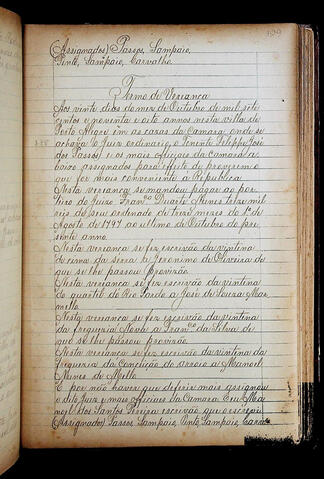 199
(Assignados) Passos, Sampaio,
Pinto, Sampaio, Carvalho.
Termo de Veriança
Aos vinte dias do mez de Outubro de mil sete
centos e noventa e oito annos nesta villa de
Porto Alegre em as casas da Camara onde se
achava o Juiz ordinario, o Tenente Felippe José
dos Passos e os mais officiaes da Camara a-
baixo assignados para effeito de proverem o
que for mais conveniente a Republica.
Nesta veriança se mandou pagar ao por-
teiro do Juizo Franco Duarte Nunes treze mil
reis do seu ordenado de treze mezes do 1º de
Agosto de 1797 ao ultimo de Outubro do pre-
sente anno.
Nesta veriança se fez escrivão da vintena
de cima da serra a Jeronimo de Oliveira de
que se lhe passou provisão.
Nesta veriança se fez escrivão da vintena
do quartel do Rio Pardo a José de Souza Mar-
mello.
Nesta veriança se fez escrivão da vintena
da freguezia Nova a Franco da Silva de
que se lhe passou provisão.
Nesta veriança se fez escrivão da vintena da
freguezia da Conceição do arroio a Manoel
Nunes de Mello.
E por não haver que deferir mais assignou
o dito Juiz e mais officiaes da Camara. Eu Ma-
noel dos Santos Pereira escrivão que o escrevi
(Assignados) Passos, Sampaio, Pinto, Sampaio,